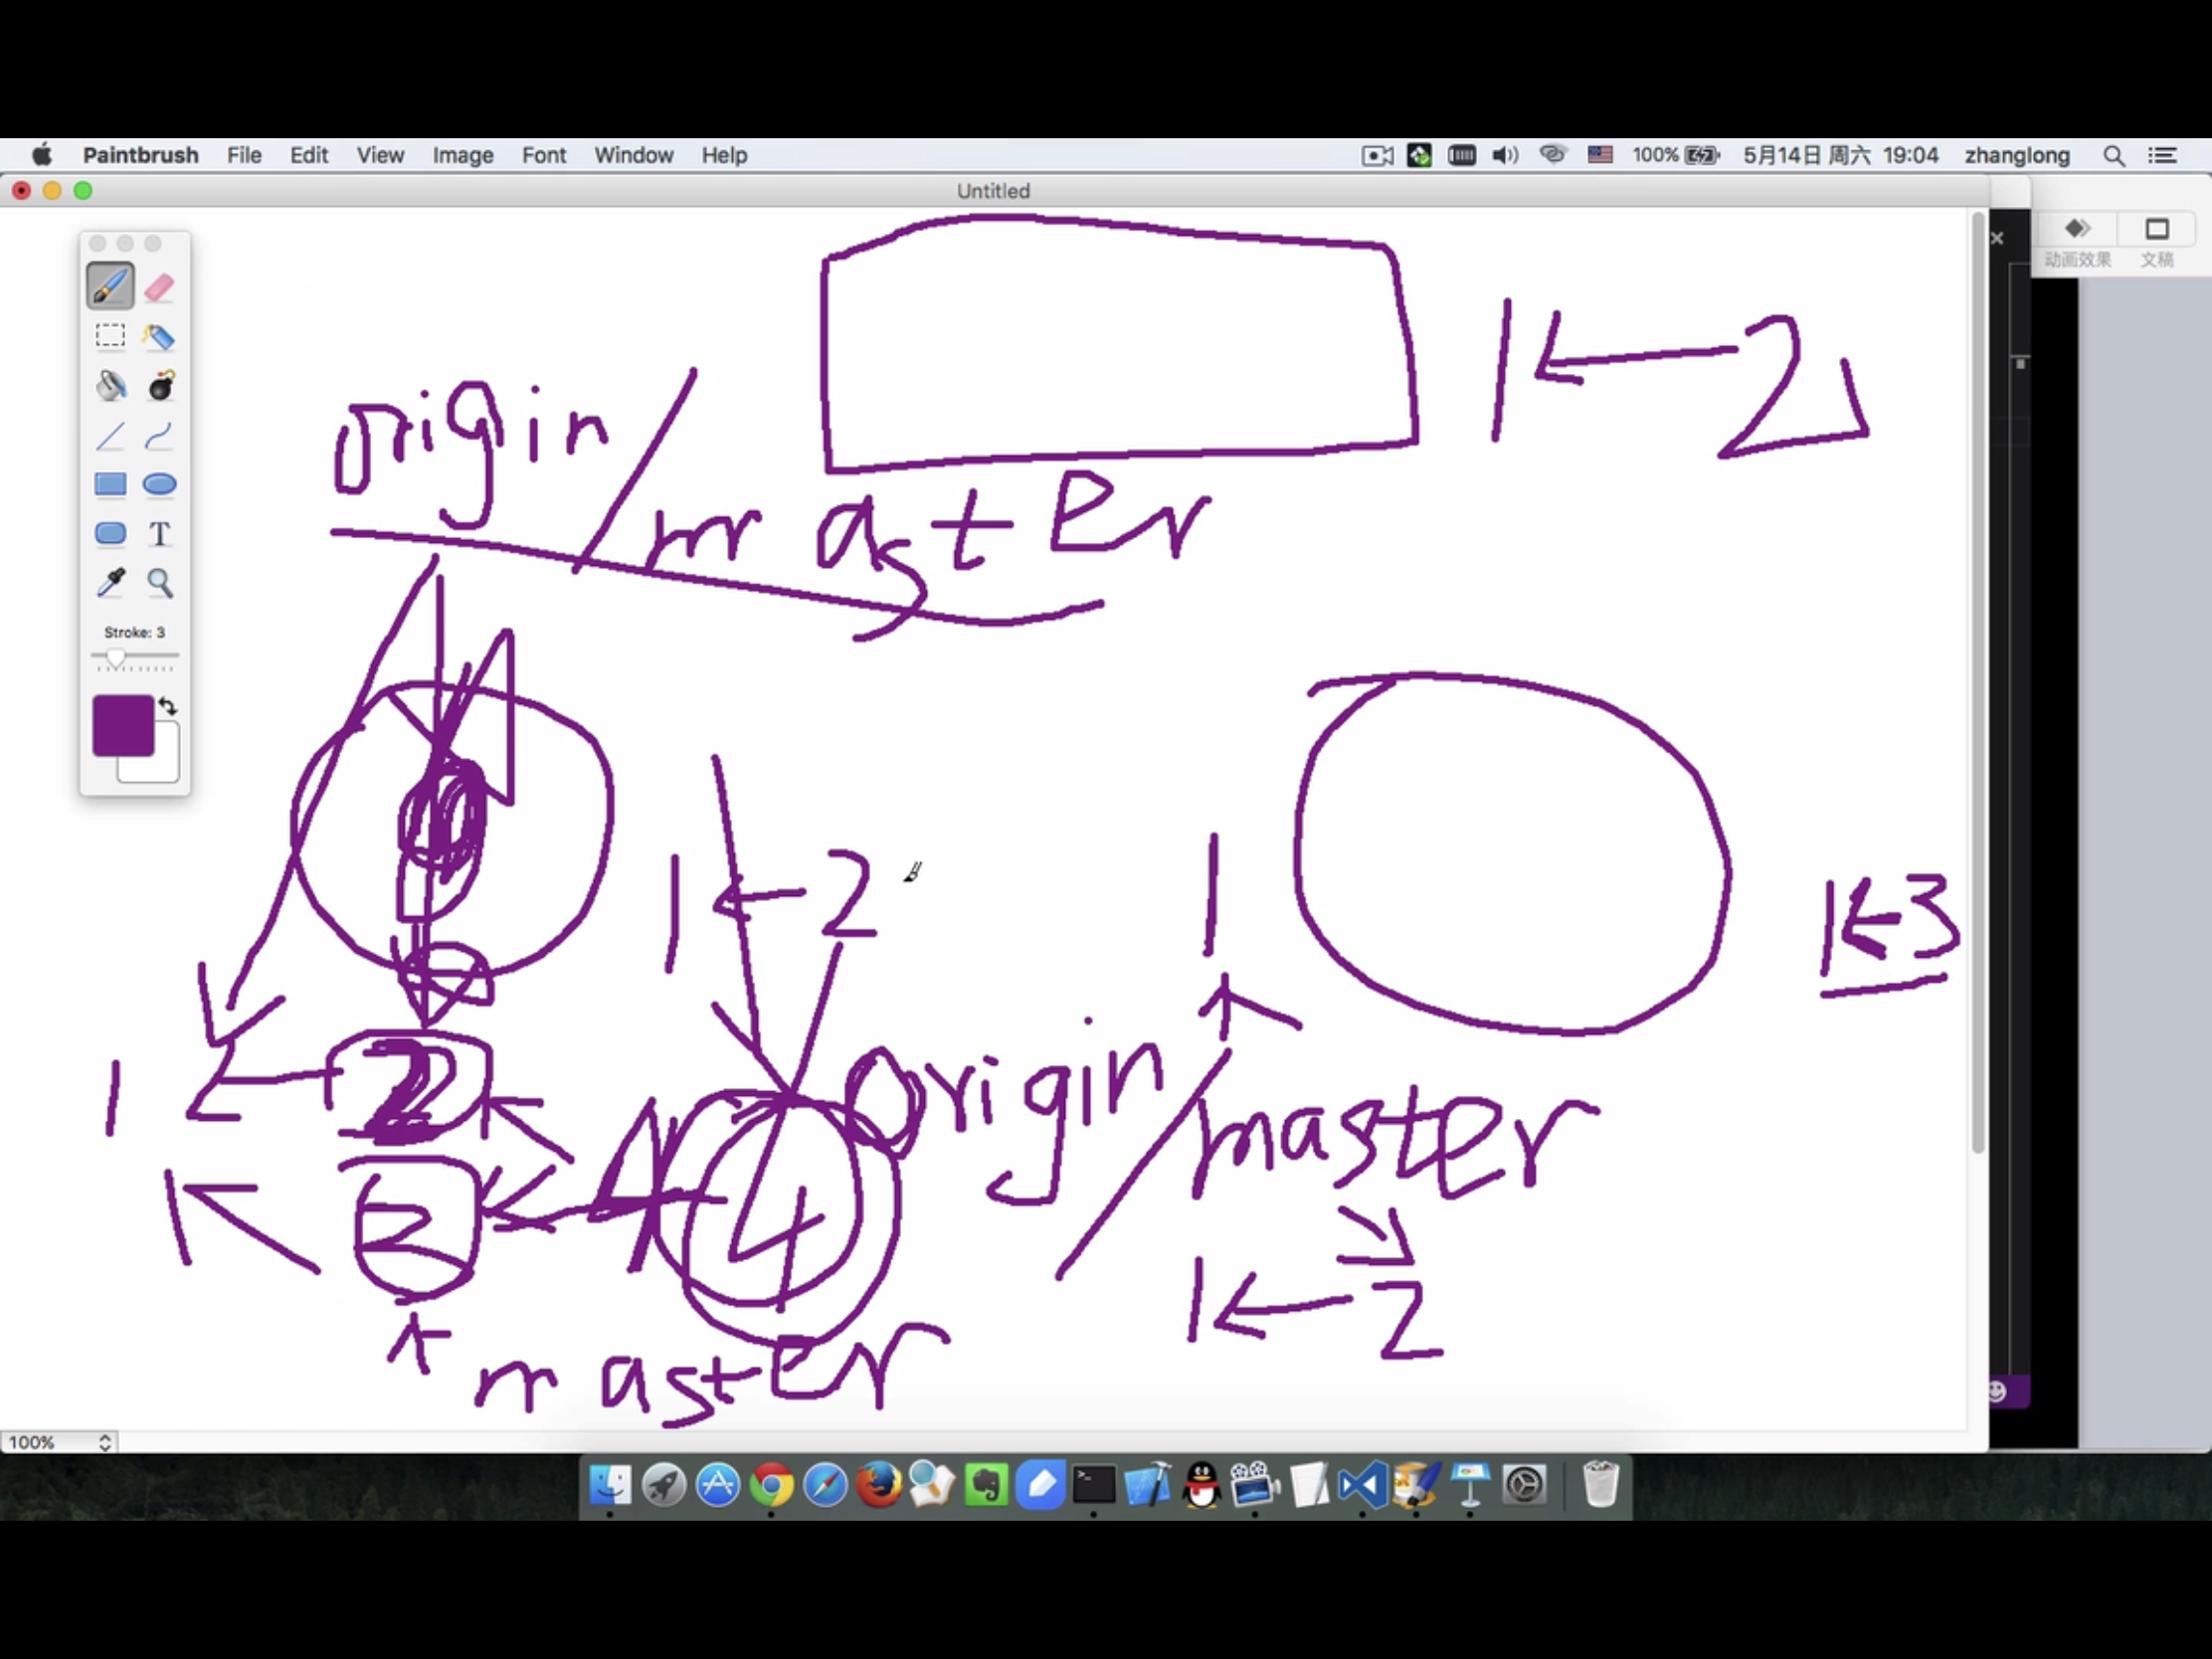 Paintbrush File Edit View Image Font Window Help 100% 5月14日 周六 19:04 zhanglong
Untitled
动画效果 文稿
T
Stroke: 3
100%
1 ← 2
origin/master
1 ← 2
1
1 ← 3
1 ← 2
origin/master
3
4
1 ← 2
master